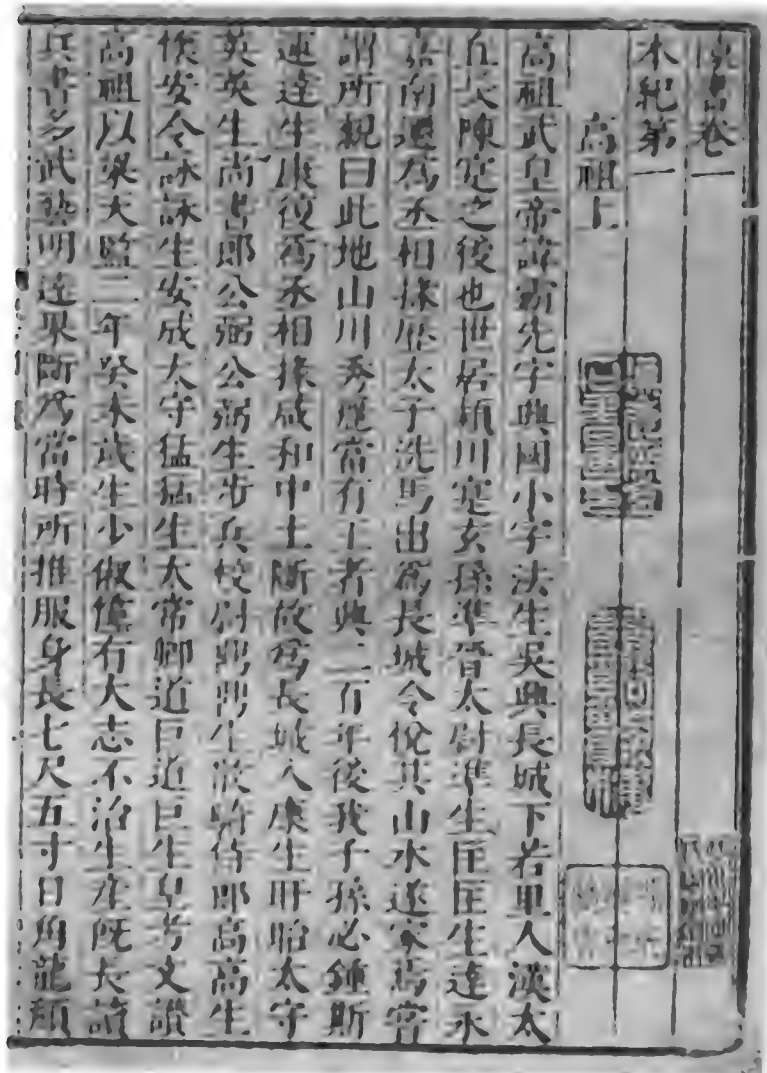 陳書卷一
本紀第一
高祖上
高祖武皇帝諱霸先字興國小字法生吳興長城下若里人漢太
丘長陳寔之後也世居潁川寔玄孫準晉太尉準生匡匡生達永
嘉南遷爲丞相掾歷太子洗馬出爲長城令悅其山水遂家焉嘗
謂所親曰此地山川秀麗當有王者興二百年後我子孫必鍾斯
運達生康復爲丞相掾咸和中土斷故爲長城人康生盱眙太守
英英生尚書郎公弼公弼生步兵校尉鼎鼎生散騎侍郎高高生
懷安令詠詠生安成太守猛猛生太常卿道巨道巨生皇考文讃
高祖以梁天監二年癸未歲生少俶儻有大志不治生產既長讀
兵書多武藝明達果斷爲當時所推服身長七尺五寸日角龍顏